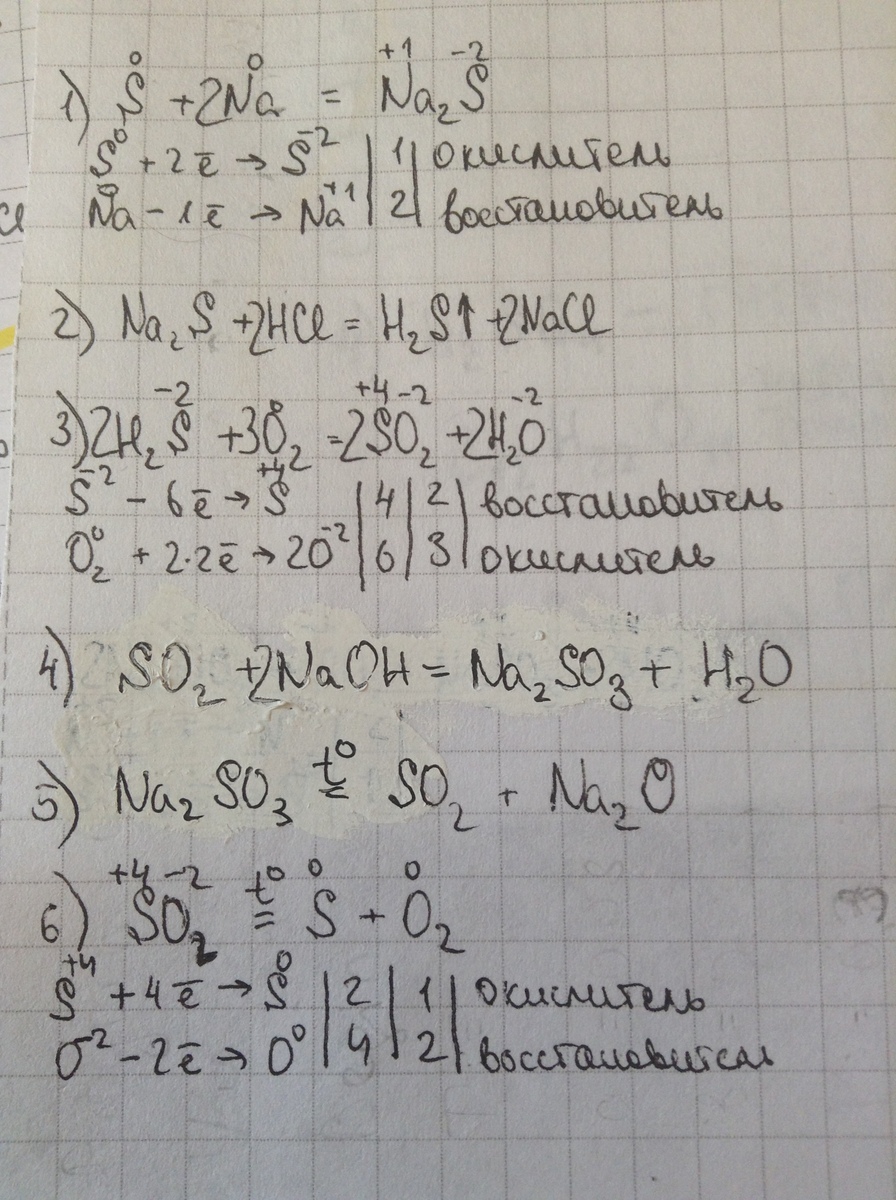 0 0 +1 -2
1) S + 2Na = Na₂S
S⁰ + 2ē → S⁻² | 1 | окислитель
Na⁰ - 1ē → Na⁺¹ | 2 | восстановитель
2) Na₂S + 2HCl = H₂S↑ + 2NaCl
-2 0 +4 -2 -2
3) 2H₂S + 3O₂ = 2SO₂ + 2H₂O
S⁻² - 6ē → S⁺⁴ | 4 | 2 | восстановитель
O₂⁰ + 2·2ē → 2O⁻² | 6 | 3 | окислитель
4) SO₂ + 2NaOH = Na₂SO₃ + H₂O
t⁰
5) Na₂SO₃ = SO₂ + Na₂O
+4 -2 t⁰ 0 0
6) SO₂ = S + O₂
S⁺⁴ + 4ē → S⁰ | 2 | 1 | окислитель
O⁻² - 2ē → O⁰ | 4 | 2 | восстановител